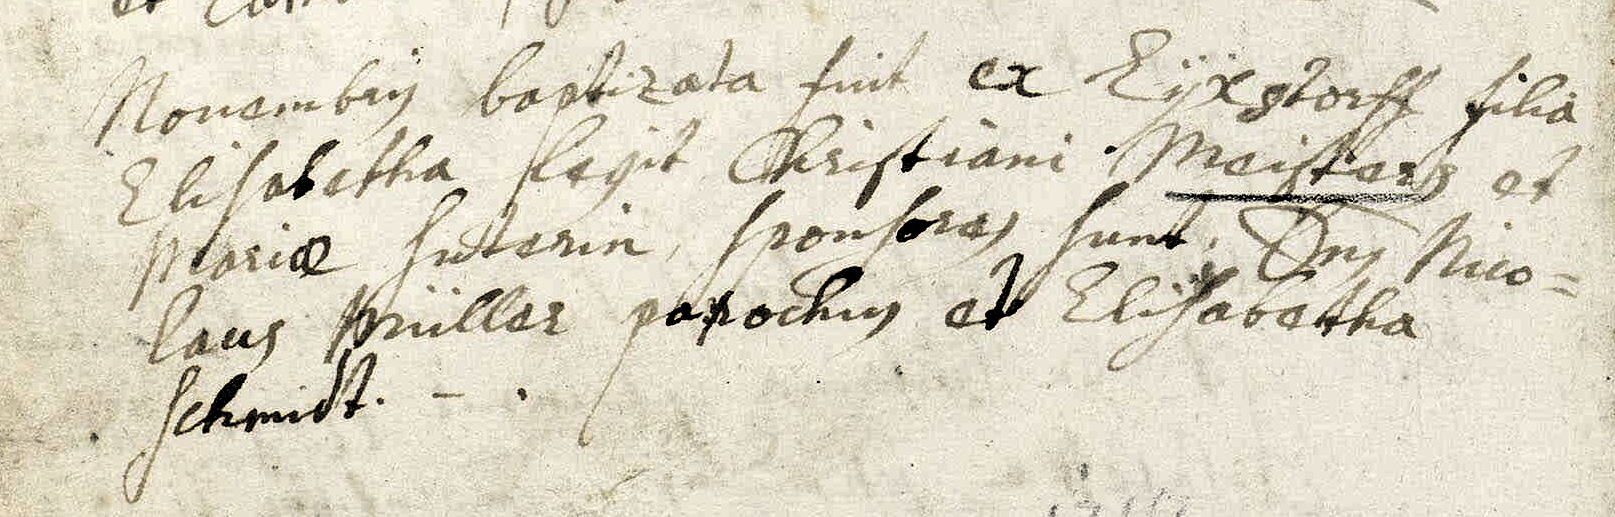 Novembris baptizata fuit ex Eÿxstorff filia
Elisabetha legit Christiani Meisters et
Mariæ Suterin, sponsores sunt. Dns Nico=
laus Müller parochus et Elisabetha
Schmidt. - .